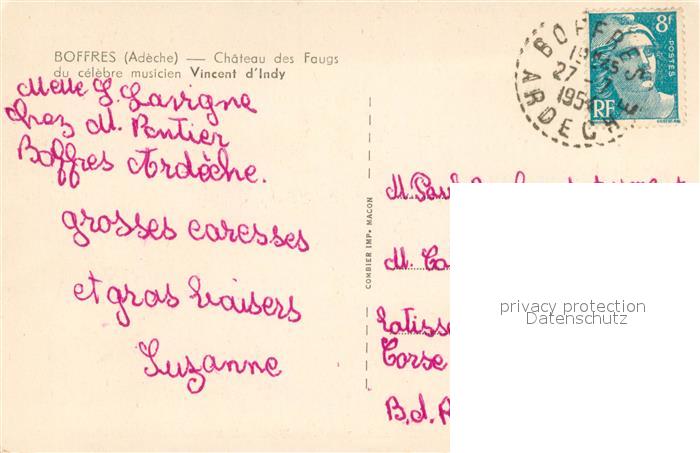 BOFFRES (Adèche) — Château des Faugs
du célèbre musicien Vincent d'Indy
Melle S. Lavigne
chez M. Pontier
Boffres Ardèche.
grosses caresses
et gros baisers
Suzanne
COMBIER IMP. MACON
BOFFRES
27-7
ARDECHE
8F
POSTES
RF
M. Paul
M. Ca
Pâtisse
Corse
B.d.R
privacy protection
Datenschutz